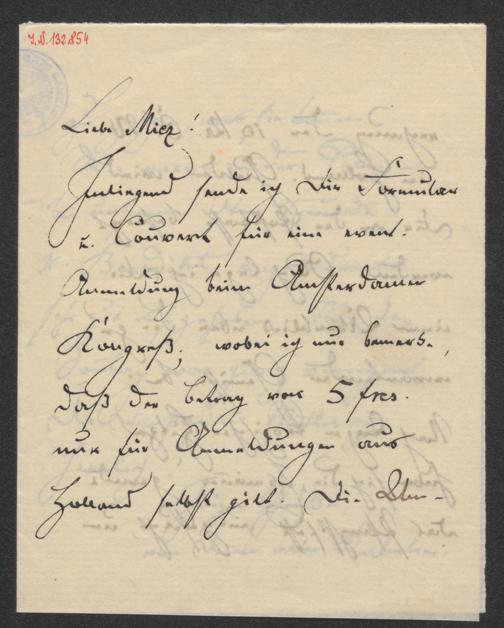 J.N. 132.854
Liebe Miez!
Inliegend sende ich Dir Formular
u. Couvert für eine event.
Anmeldung beim Amsterdamer
Kongreß; wobei ich nur bemerke,
daß der Betrag von 5 frcs.
nur für Anmeldungen aus
Holland selbst gilt. Die